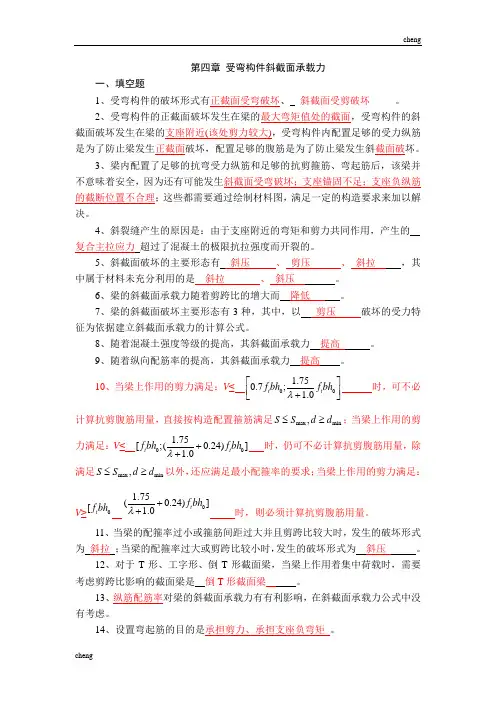 cheng
第四章 受弯构件斜截面承载力
一、填空题
1、受弯构件的破坏形式有正截面受弯破坏、 斜截面受剪破坏 。
2、受弯构件的正截面破坏发生在梁的最大弯矩值处的截面，受弯构件的斜
截面破坏发生在梁的支座附近(该处剪力较大)，受弯构件内配置足够的受力纵筋
是为了防止梁发生正截面破坏，配置足够的腹筋是为了防止梁发生斜截面破坏。
3、梁内配置了足够的抗弯受力纵筋和足够的抗剪箍筋、弯起筋后，该梁并
不意味着安全，因为还有可能发生斜截面受弯破坏；支座锚固不足；支座负纵筋
的截断位置不合理；这些都需要通过绘制材料图，满足一定的构造要求来加以解
决。
4、斜裂缝产生的原因是：由于支座附近的弯矩和剪力共同作用，产生的
复合主拉应力 超过了混凝土的极限抗拉强度而开裂的。
5、斜截面破坏的主要形态有 斜压 、 剪压 、 斜拉 ，其
中属于材料未充分利用的是 斜拉 、 斜压 。
6、梁的斜截面承载力随着剪跨比的增大而 降低 。
7、梁的斜截面破坏主要形态有3种，其中，以 剪压 破坏的受力特
征为依据建立斜截面承载力的计算公式。
8、随着混凝土强度等级的提高，其斜截面承载力 提高 。
9、随着纵向配筋率的提高，其斜截面承载力 提高 。
10、当梁上作用的剪力满足：V≤ [0.7f_t bh_0; 1.75/(λ+1.0) f_t bh_0] 时，可不必
计算抗剪腹筋用量，直接按构造配置箍筋满足S≤S_max,d≥d_min；当梁上作用的剪
力满足：V≤ [f_t bh_0;(1.75/(λ+1.0)+0.24)f_t bh_0] 时，仍可不必计算抗剪腹筋用量，除
满足S≤S_max,d≥d_min以外，还应满足最小配箍率的要求；当梁上作用的剪力满足：
V≥[f_t bh_0 (1.75/(λ+1.0)+0.24)f_t bh_0] 时，则必须计算抗剪腹筋用量。
11、当梁的配箍率过小或箍筋间距过大并且剪跨比较大时，发生的破坏形式
为 斜拉 ；当梁的配箍率过大或剪跨比较小时，发生的破坏形式为 斜压 。
12、对于T形、工字形、倒T形截面梁，当梁上作用着集中荷载时，需要
考虑剪跨比影响的截面梁是 倒T形截面梁 。
13、纵筋配筋率对梁的斜截面承载力有有利影响，在斜截面承载力公式中没
有考虑。
14、设置弯起筋的目的是承担剪力、承担支座负弯矩 。
cheng